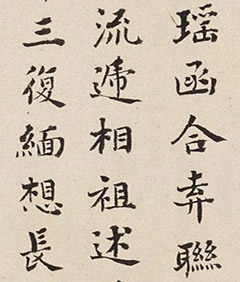 瑶函合弆聯
流遞相祖述
三復緬想長